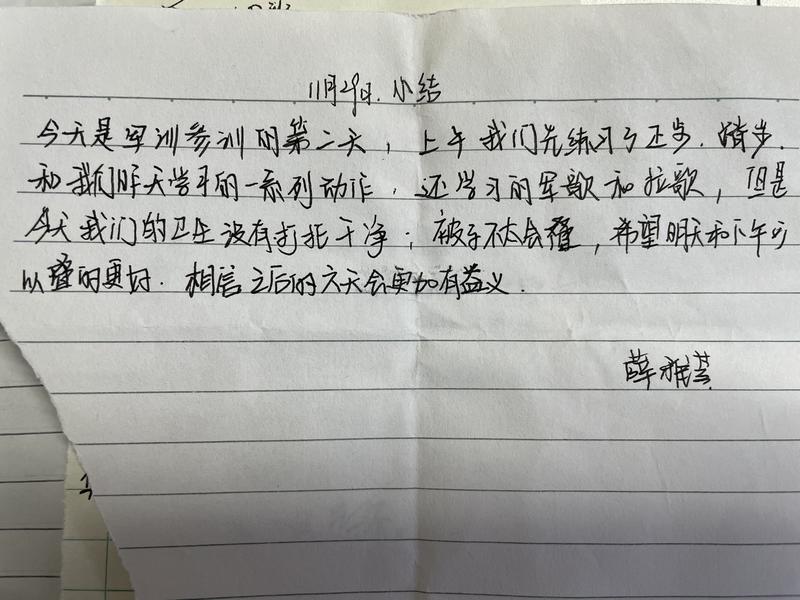 11月29日.小结
今天是军训参训的第二天，上午我们先练习了正步.踏步.
和我们昨天学习的一系列动作，还学习的军歌和拉歌，但是
今天我们的卫生没有打扫干净；被子不太会叠，希望明天和下午可
以叠的更好.相信之后的六天会更加有益义.
薛雅